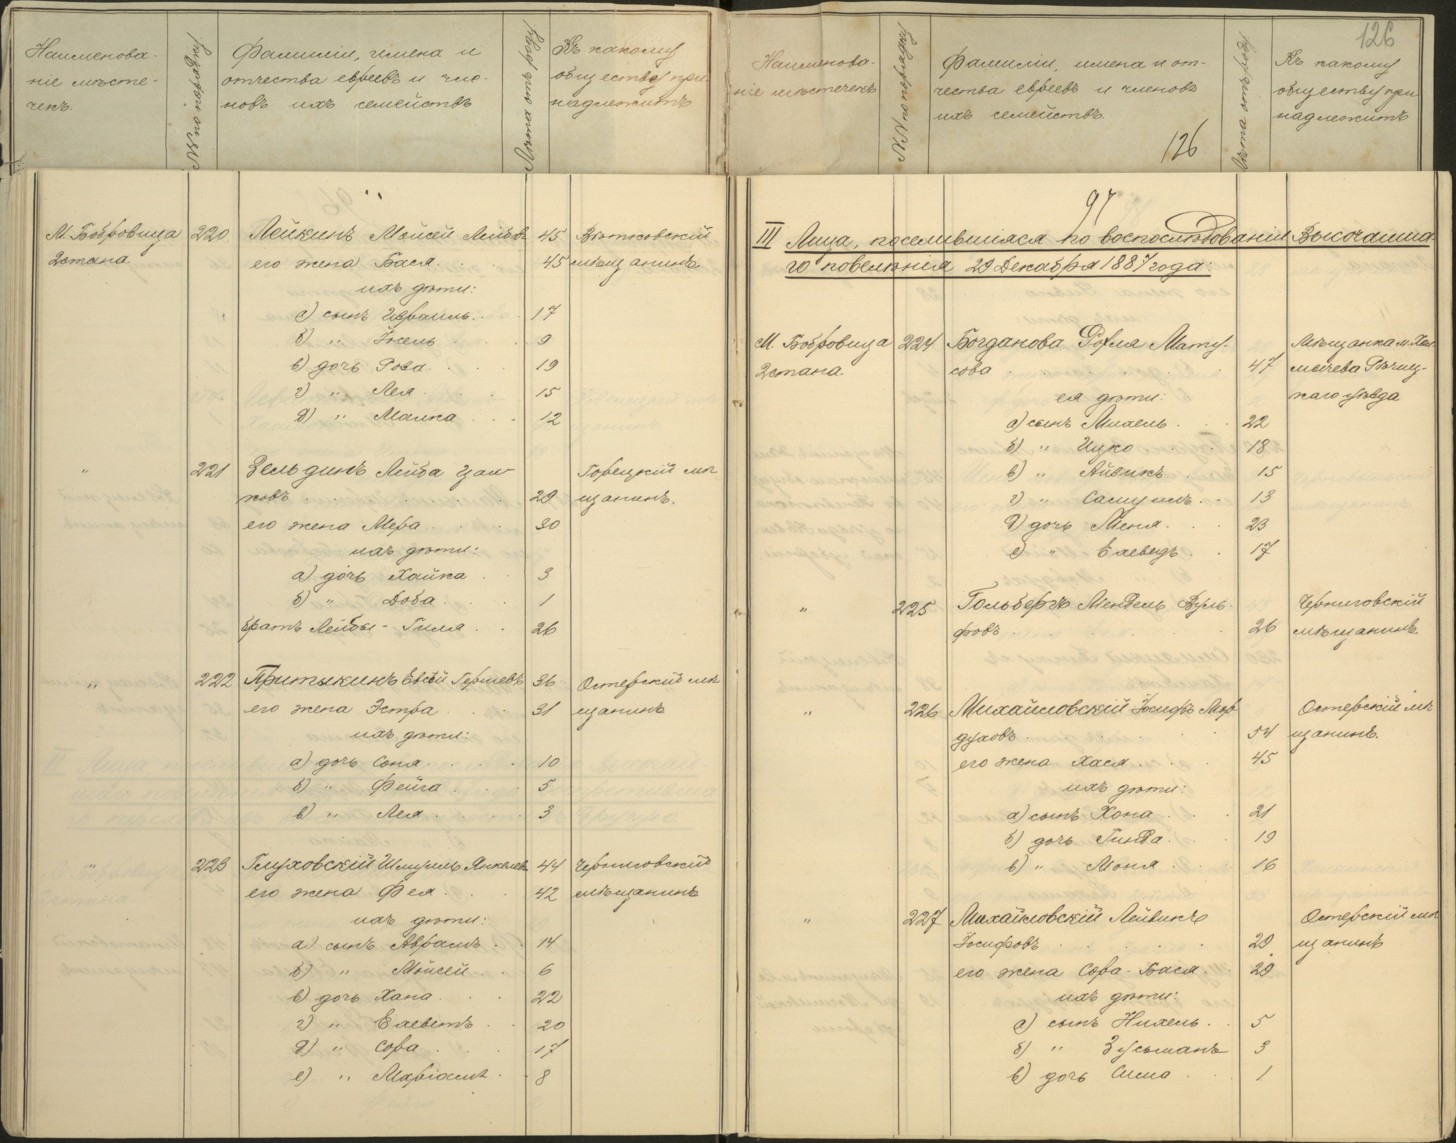 Наименова-
ніе мѣсте-
чекъ.
№№ по порядку
Фамиліи, имена и
отчества евреевъ и чле-
новъ ихъ семействъ
Лѣта отъ роду
Къ какому
обществу при
надлежитъ
М. Бобровица
2 стана.
220
Лейкинъ Мойсей Лейбовъ 45
его жена Бася 45
мѣщанинъ.
ихъ дѣти:
а) сынъ Израиль 17
б) " Іосель 9
в) дочь Роза 19
г) " Лея 15
д) " Малка 12
" 221 Зельдинъ Лейба
29
Горецкій мѣ-
щанинъ.
его жена Мера 30
ихъ дѣти:
а) дочь Хайка 3
б) " Доба 1
братъ Лейбы - Гиля 26
" 222 Притыкинъ Евсѣй Гершевъ 36 Остерскій мѣ
его жена Эстра 31 щанинъ
ихъ дѣти:
а) дочь Соня 10
б) " Фейга 5
в) " Лея 3
" 223 Глуховскій Шмуиль Янкелев. 44 Черниговскій
его жена Фея 42 мѣщанинъ
ихъ дѣти:
а) сынъ Абрамъ 14
б) " Мойсей 6
в) дочь Хана 22
г) " Ехеветъ 20
д) " Сора 17
е) " Маріасъ 8
126
Наименова-
ніе мѣстечекъ
№№ по порядку
Фамиліи, имена и от-
чества евреевъ и членовъ
ихъ семействъ.
126
Лѣта отъ роду
Къ какому
обществу при
надлежитъ
97
III Лица, поселившіяся по воспослѣдованіи Высочайша
го повелѣнія 29 Декабря 1887 года:
М. Бобровица
2 стана.
224
Богданова Рефля Мату-
сова 47
Мѣщанка м. Хол
мечева Рѣчиц-
каго уѣзда
ея дѣти:
а) сынъ Михель 22
б) " Ицко 18
в) " Айзикъ 15
г) " Самуилъ 13
д) дочь Меня 23
е) " Ехеведъ 17
" 225 Гольбергъ Мендель Вуль-
фовъ 26
Черниговскій
мѣщанинъ.
" 226 Михайловскій Іосифъ Мор
духовъ 54
Остерскій мѣ
щанинъ.
его жена Хася 45
ихъ дѣти:
а) сынъ Хона 21
б) дочь Гинда 19
в) " Моня 16
" 227 Михайловскій Лейвикъ
Іосифовъ 29
Остерскій мѣ
щанинъ
его жена Сора-Бася 29
ихъ дѣти:
а) сынъ Нихель 5
б) " Зусьманъ 3
в) дочь Сима 1